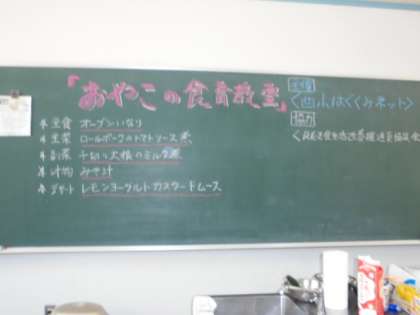 「おやこの食育教室」
主食 オープンいなり
主菜 ロールポークのトマトソース煮
副菜 千切り大根のミルク煮
汁物 みそ汁
デザート レモンヨーグルトカスタードムース
主催
はぐくみネット
協力
食生活改善推進員協議会